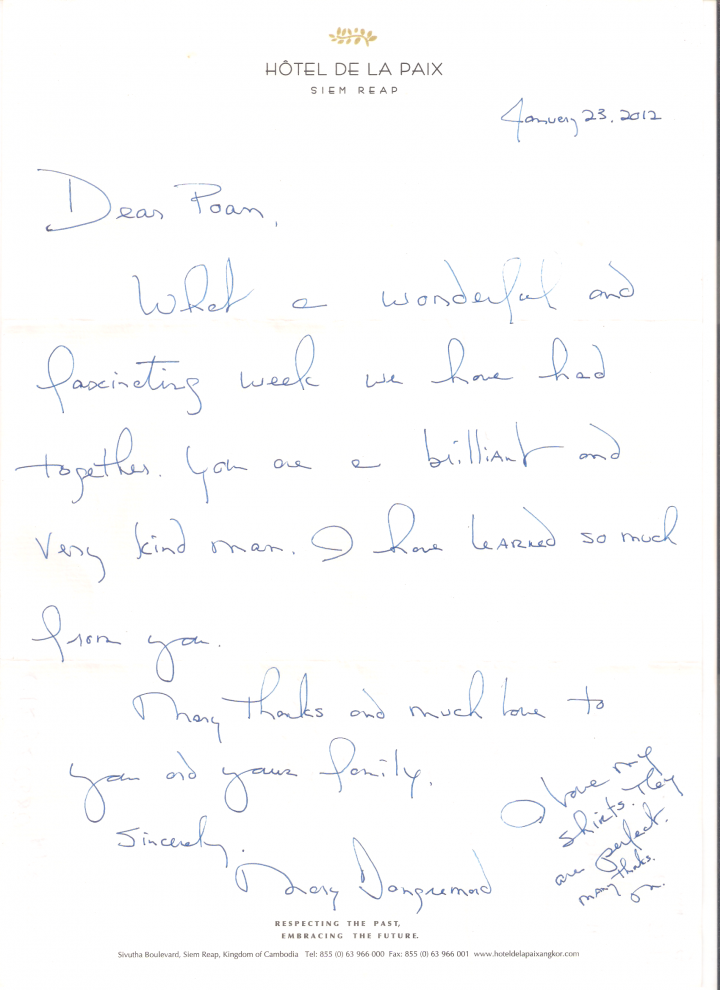 HÔTEL DE LA PAIX
SIEM REAP
January 23, 2012
Dear Poan,
What a wonderful and
fascinating week we have had
together. You are a brilliant and
very kind man. I have learned so much
from you.
Many thanks and much love to
you and your family.
Sincerely,
Mary
I love my
shirts. They
are perfect.
many thanks.
RESPECTING THE PAST,
EMBRACING THE FUTURE.
Sivutha Boulevard, Siem Reap, Kingdom of Cambodia Tel: 855 (0) 63 966 000 Fax: 855 (0) 63 966 001 www.hoteldelapaixangkor.com